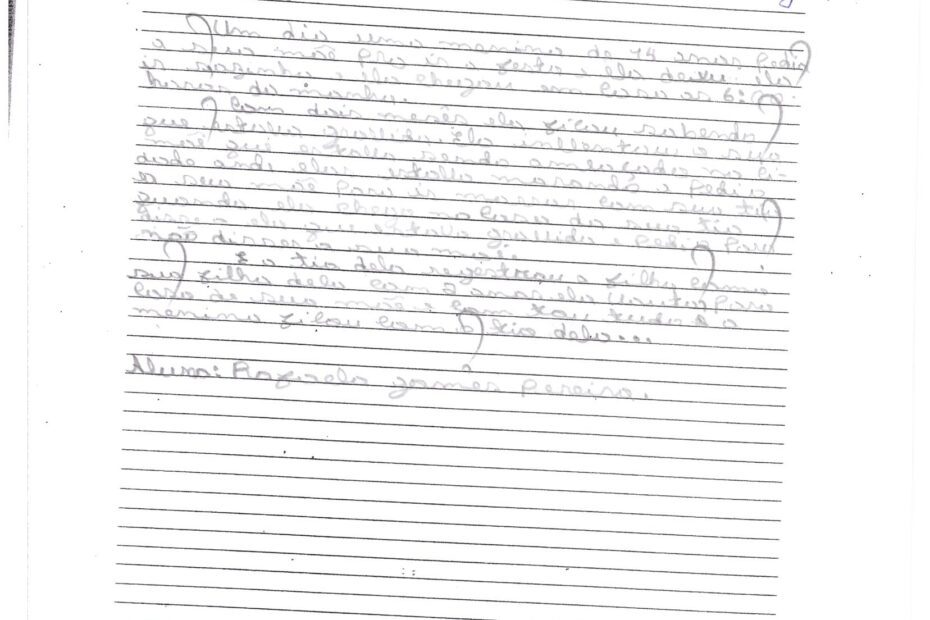 Um dia uma menina de 14 anos pedia
a sua mãe pra ir a festa e ela dexu ela
ir sozinha e ela chegou em casa as 6:00
horas da manha.
Com dois meses ela ficou sabendo
que estava gravida. Ela a sua
mãe que estava sendo no ci-
dade onde ela estava morando e pedio
a sua mãe para ir morar com seu tio
quando ela chego na casa do seu tio
disse a ela que estava gravida e pedio para
não disser a sua mãe.
E o tio dela a filha como
sua filha dela com 2 anos ela para
casa de sua mãe e com tou tudo e a
menina ficou com o tio dela...
Aluna: gomes Pereira.